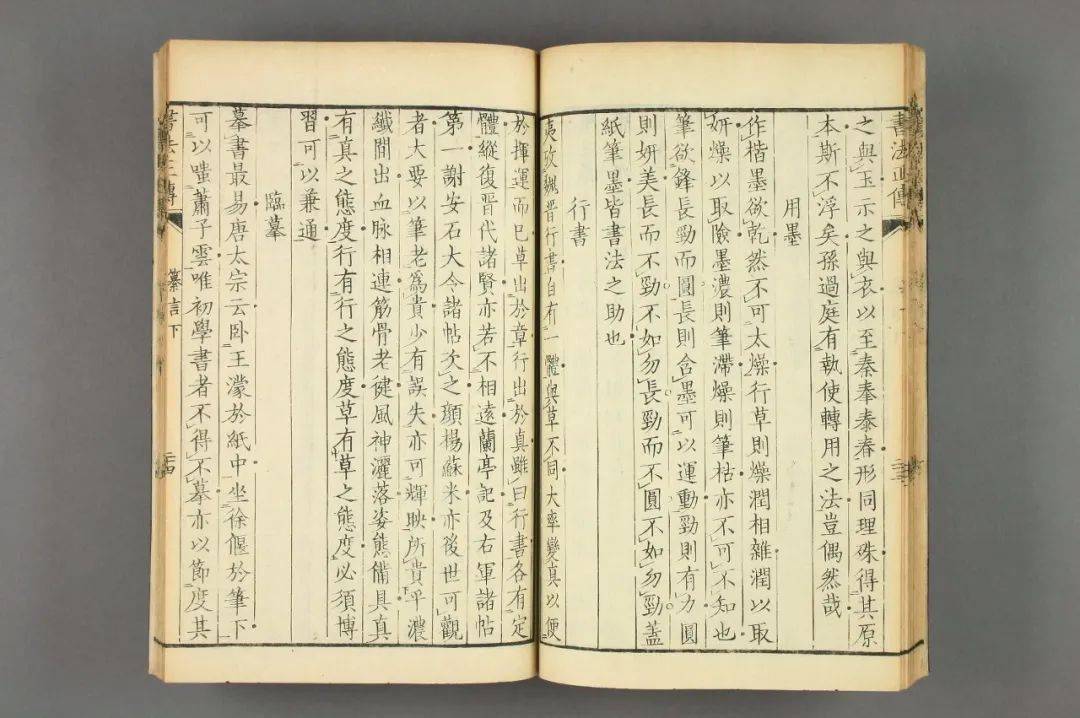 書法正傳
之與玉示之與衣以至秦奉泰春形同理殊得其原
本斯不浮矣孫過庭有執使轉用之法豈偶然哉
用墨
作楷墨欲乾然不可太燥行草則燥潤相雜潤以取
妍燥以取險墨濃則筆滯燥則筆枯亦不可不知也
筆欲鋒長勁而圓長則含墨可以運動勁則有力圓
則妍美長而不勁不如勿長勁而不圓不如勿勁蓋
紙筆墨皆書法之助也
行書
夷攷魏晉行書自有一體與草不同大率變真以便
於揮運而已草出於章行出於真雖曰行書各有定
體縱復晉代諸賢亦若不相遠蘭亭記及右軍諸帖
第一謝安石大令諸帖次之顏楊蘇米亦後世可觀
者大要以筆老爲貴少有誤失亦可輝映所貴乎濃
纖間出血脉相連筋骨老健風神灑落姿態備具真
有真之態度行有行之態度草有草之態度必須博
習可以兼通
臨摹
摹書最易唐太宗云卧王濛於紙中坐徐偃於筆下
可以嗤蕭子雲唯初學書者不得不摹亦以節度其
書法正傳 纂言下